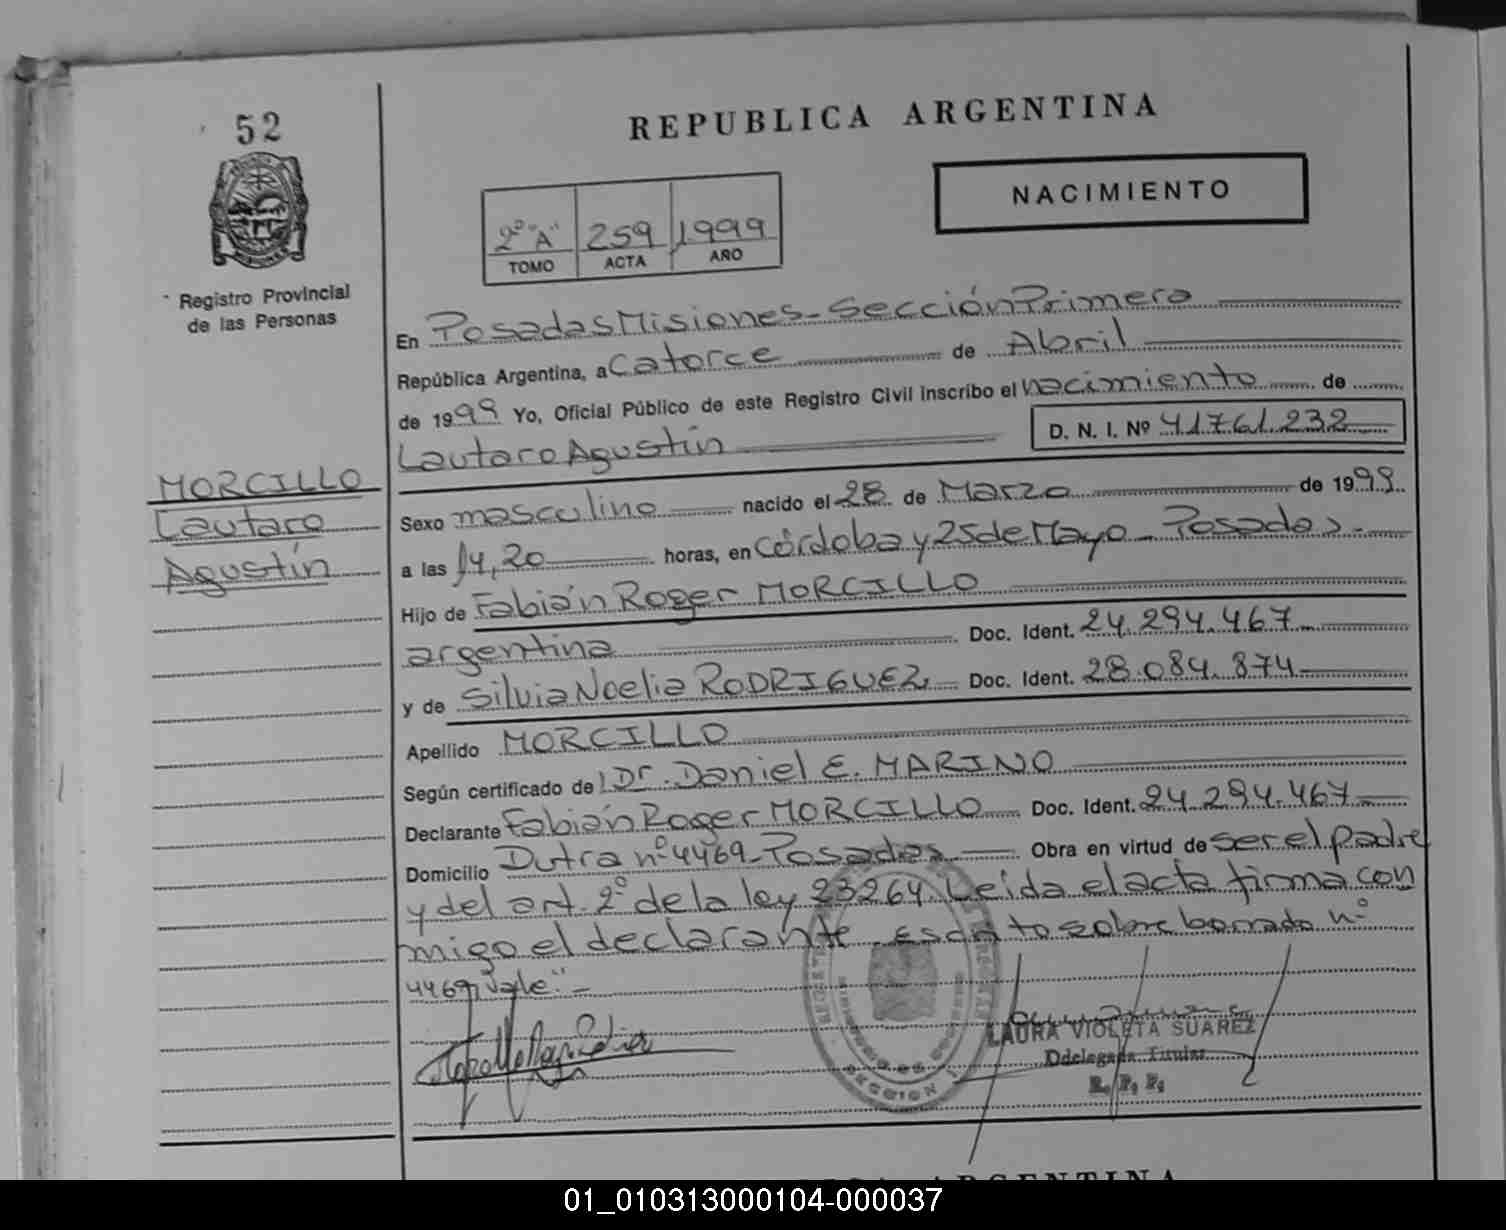 52
REPUBLICA ARGENTINA
NACIMIENTO
2º "A" 259 1999
TOMO ACTA AÑO
Registro Provincial
de las Personas
En Posadas Misiones - Sección Primera
República Argentina, a Catorce de Abril
de 1999 Yo, Oficial Público de este Registro Civil inscribo el nacimiento de
Lautaro Agustín D. N. I. Nº 41761.232
MORCILLO
Lautaro
Agustín
Sexo masculino nacido el 28 de Marzo de 1999
a las 14,20 horas, en Córdoba y 25 de Mayo - Posadas.-
Hijo de Fabián Roger MORCILLO
argentina Doc. Ident. 24.294.467
y de Silvia Noelia RODRIGUEZ Doc. Ident. 28.084.874
Apellido MORCILLO
Según certificado de Dr. Daniel E. MARINO
Declarante Fabián Roger MORCILLO Doc. Ident. 24.294.467
Domicilio Dutra nº 4469 - Posadas Obra en virtud de ser el padre
y del art. 2º de la ley 23264. Leida el acta firma con
migo el declarante. Escrito sobre borrado nº
4469, Vale." -
SECCION 1
LAURA VIOLETA SUAREZ
Delegada Titular
R. P. P.
ARGENTINA
01_010313000104-000037